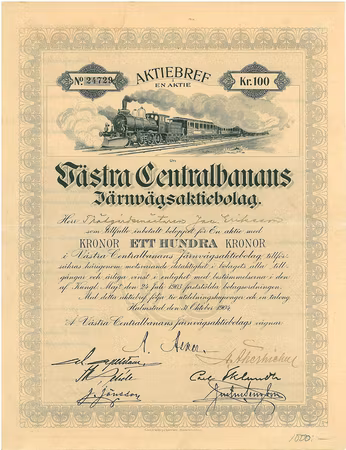 No 24729
AKTIEBREF
Kr. 100
EN AKTIE
Västra Centralbanans
Järnvägsaktiebolag.
Herr Jan Eriksson
som tillfullo inbetalt beloppet för En aktie med
KRONOR ETT HUNDRA KRONOR
i Västra-Centralbanans Järnvägsaktiebolag tillför-
säkras härigenom motsvarande delaktighet i bolagets alla till-
gångar och årliga vinst i enlighet med bestämmelserna i den
af Kongl. Maj:t den 24 juli 1903 fastställda bolagsordningen.
Med detta aktiebref följa tio utdelningskuponger och en talong
Halmstad den 31 Oktober 1904
Å Västra Centralbanans järnvägsaktiebolags vägnar
J. Jönsson
Carl Eklundh
1800:-